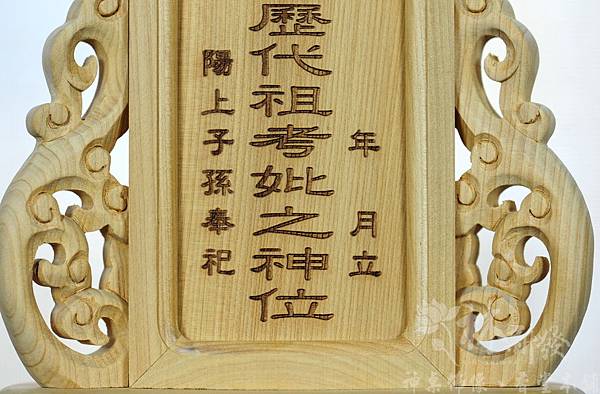 年 月立
歷代祖考妣之神位
陽上子孫奉祀